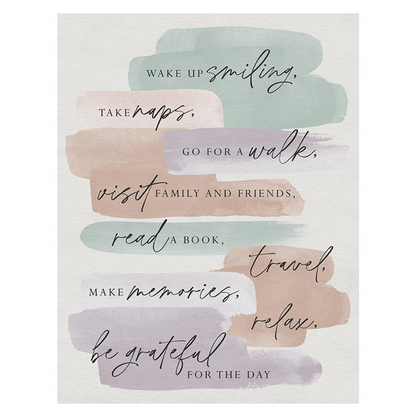 WAKE UP smiling,
TAKE naps,
GO FOR A walk,
visit FAMILY AND FRIENDS,
read A BOOK,
travel,
MAKE memories,
relax,
be grateful
FOR THE DAY